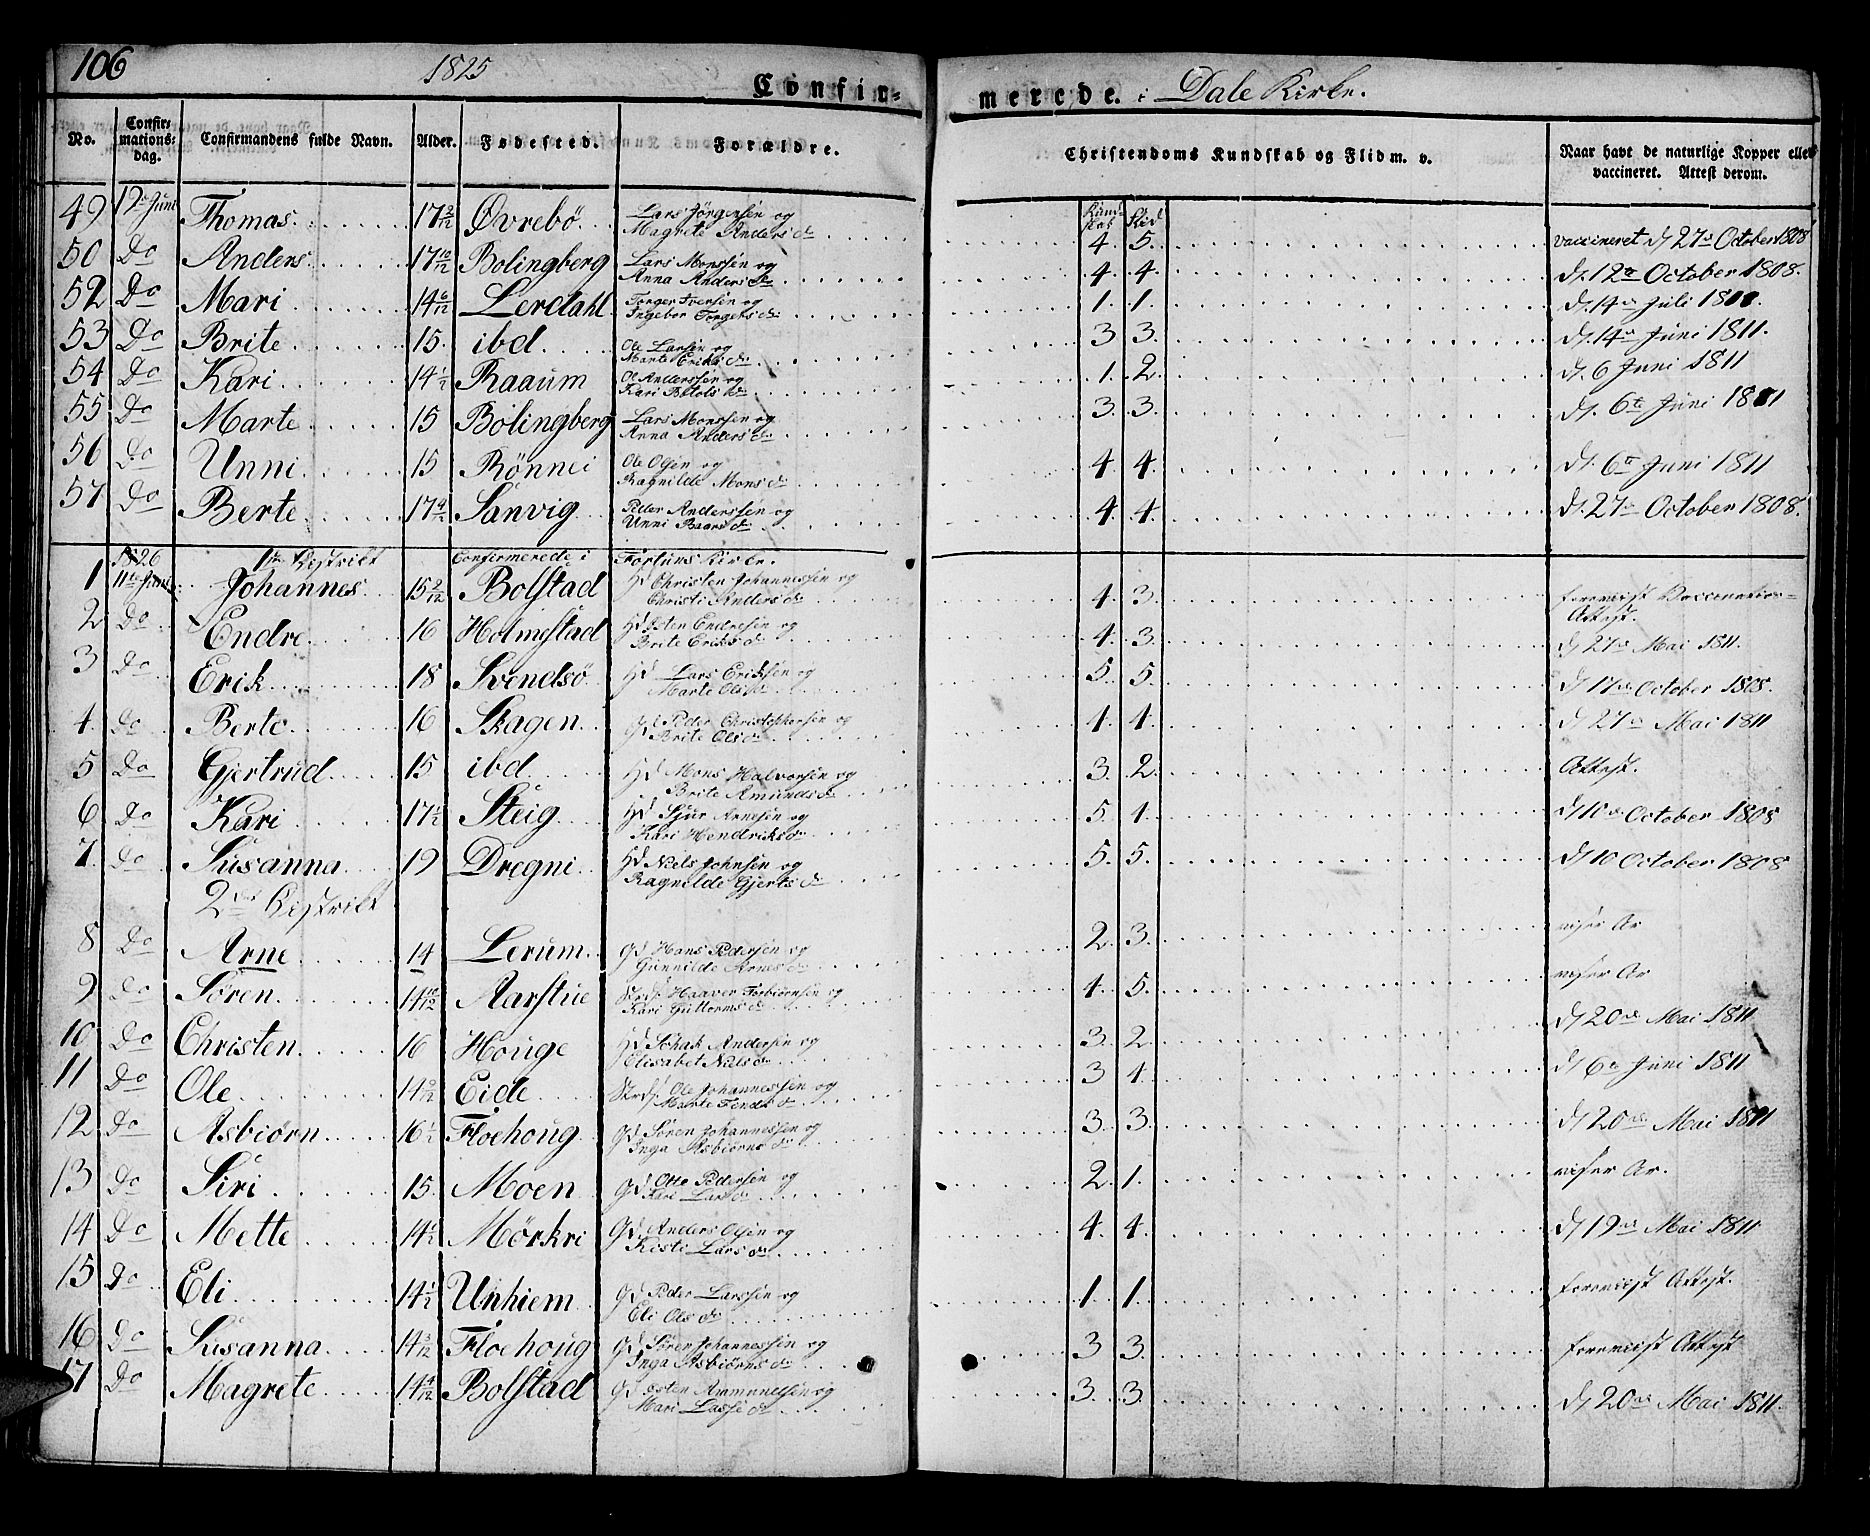 106 1825 Confir= merede. i Dale Kirke.
No. Confir= mations= dag. Confirmandens fulde Navn. Alder. Fødested. Forældre. Christendoms Kundskab og Flid m. v. Naar havt de naturlige Kopper eller vaccineret. Attest derom.
Kund- skab Flid
49 12te Juni Thomas 17 9/12 Øvrebö Lars Jörgensen og Magrete Anders dr 4 5 vaccineret d. 27de October 1808
50 Do Anders 17 10/12 Bolingberg Lars Monssen og Anna Anders dr 4. 4. d. 12te October 1808.
52 Do Mari 14 6/12 Lerdahl Torger Iversen og Ingebor Torgers dr 1. 1. d. 14de Juli 1811.
53 Do Brite 15. ibd Ole Larsen og Marte Eriks dr 3 3. d. 14de Juni 1811.
54 Do Kari 14 1/2 Raaum Ol Anderssen og Kari Botols dr 1. 2. d. 6 Juni 1811
55 Do Marte 15 Bolingberg Lars Monssen og Anna Anders dr 3. 3. d. 6te Juni 1811
56 Do Unni 15 Rönnei Ole Olsen og Ragnilde Mons dr 4 4. d. 6te Juni 1811
57 Do Berte 17 4/12 Sanvig Peder Anderssen og Unni Baars dr 4. 4. d. 27de October 1808.
1826 1ste Distrikt Confirmerede i Fortuns Kirke.
1 11te Juni Johannes 15 9/12 Bolstad Hd Christen Johannessen og Christi Anders dr 4. 3. foreviist Vaccinations= Attest.
2 Do Endre 16 Holmestad Hd Osten Endresen og Brite Eriks dr 4. 3. d. 27de Mai 1811.
3 Do Erik 18 Svendsö Hd Lars Eriksen og Marte Ols dr 5. 5. d 17de October 1808.
4. Do Berte 16 Skagen Gd Peder Christophersen og Brite Ols dr 4. 4. d 27de Mai 1811
5 Do Gjertrud 15 ibd Hd Mons Halvorsen og Brite Amunds dr 3. 2. Attest.
6 Do Kari 17 1/2 Steig Hd Sjur Arnesen og Kari Hendriks dr 5 4. d 10de October 1808
7. Do Susanna 19 Dregni Hd Niels Johnsen og Ragnilde Gjerts dr 5. 5. d 10 October 1808
2det Distrikt
8 Do Arne 14 Lerum Gd Hans Pedersen og Gunnilde Arnes dr 2 3. viser Ar
9 Do Sören 14 10/12 Aarstue Haaver Torbiörnsen og Kari Guttorms dr 4. 5. viser Ar
10 Do Christen 16 Houge Hd Anderssen og Elisabet Niels dr 3. 2. d 20de Mai 1811
11 Do Ole 14 9/12 Eide Ole Johannessen og Marte dr 3 4. d 6te Juni 1811
12 Do Asbiörn 16 1/2 Floehoug Gd Sören Johannessen og Inga Asbiörns dr 3. 3. d 20de Mai 1811
13 Do Siri 15. Moen Gd Otto Pedersen og Kari Lars dr 2 1. viser Ar.
14 Do Mette 14 1/2 Mörkri Gd Anders Olsen og Kisti Lars dr 4. 4. d 19de Mai 1811
15 Do Eli 14 1/2 Unhiem Gd Peder Larssen og Eli Ols dr 1 1. foreviist Attest.
16 Do Susanna 14 3/12 Floehoug Gd Sören Johannessen og Inga Asbiörns dr 3 3. foreviist Attest
17 Do Magrete 14 4/12 Bolstad Gd Osten Ammunssen og Mari Lasse dr 3 3. d 20de Mai 1811.